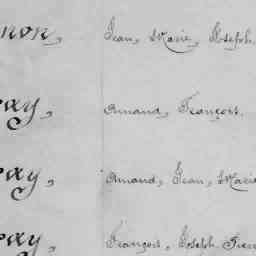 non, Jean, Marie, Joseph.
ay, Amand, François.
ay, Amand, Jean, Marie
ay, François, Joseph,